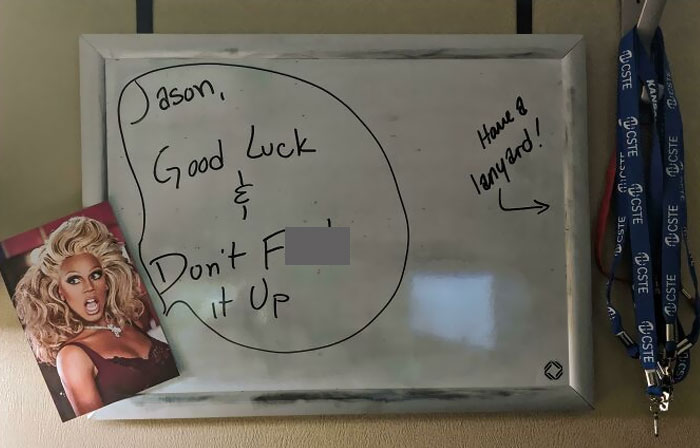 Jason,
Good Luck
&
Don't F
it Up
Have a
lanyard!
CSTE
CSTE
CSTE
CSTE
CSTE
CSTE
CSTE
CSTE
CSTE